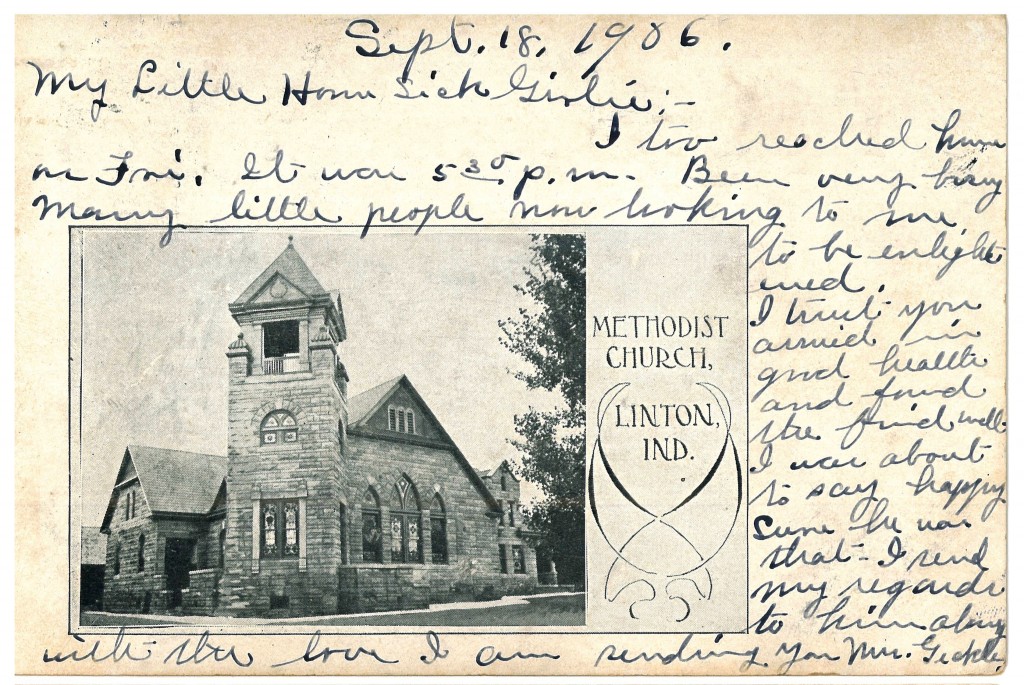 Sept. 18, 1906.
My Little Home Sick Girlie;-
I too reached home
on Fri. It was 5 30 p.m. Been very busy
Many little people now looking to me,
to be enlighte
ned.
I trust you
arrived in
good health
and found
the friend well
I was about
to say happy
Sure he was
that - I send
my regards
to him along
with the love I am sending you Mrs.
METHODIST
CHURCH,
LINTON,
IND.